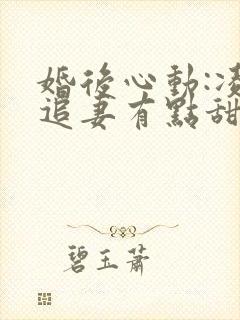 婚後心動:凌
追妻有點甜
碧玉蕭